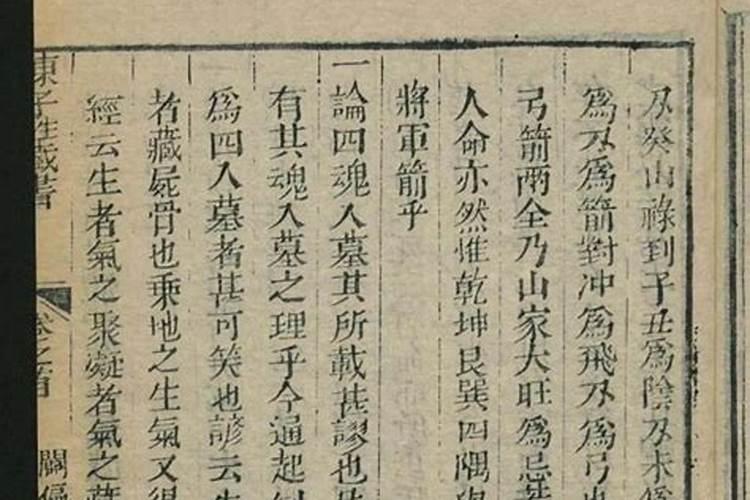 刃癸山祿到子丑爲陰刃未爲
爲刃爲箭對冲爲飛刃爲弓
弓箭兩全乃山家大旺爲忌若
人命亦然惟乾坤艮巽四隅與
將軍箭乎
一論四魂入墓其所載甚謬也
有其魂入墓之理乎今通起
爲四入墓者甚可笑也諺云生
者藏屍骨也乘地之生氣又得
經云生者氣之聚凝者氣之
卷之首
闢僞